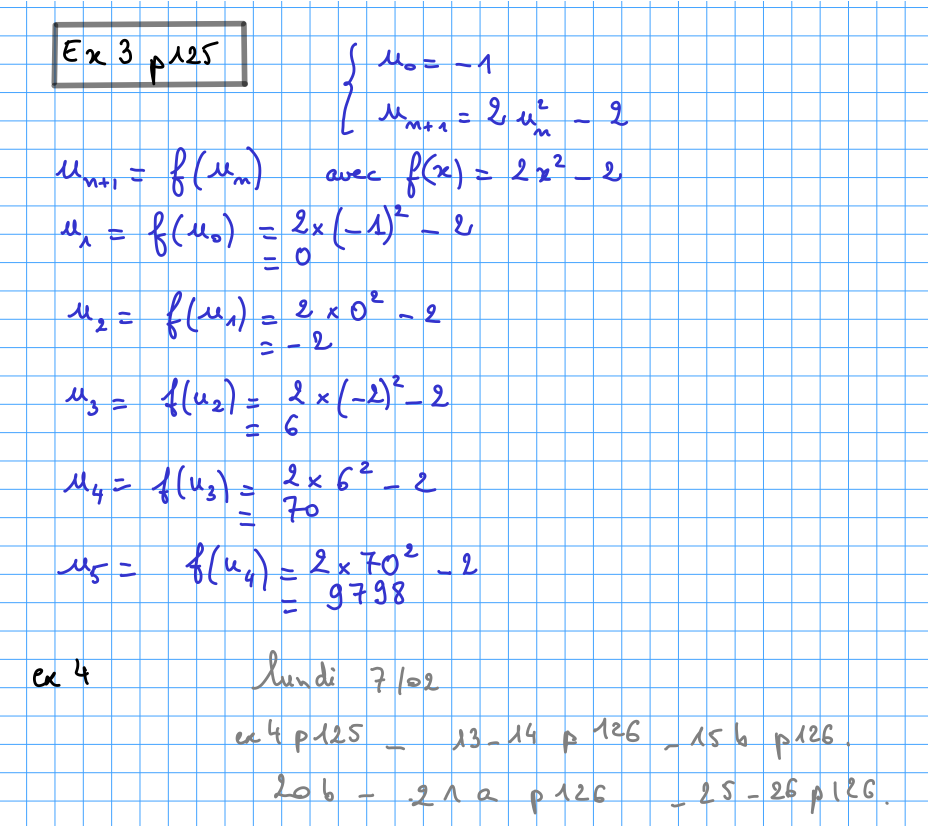 Ex 3 p125
{ u₀ = -1
u_{n+1} = 2 u_n² - 2
u_{n+1} = f(u_n) avec f(x) = 2x² - 2
u₁ = f(u₀) = 2×(-1)² - 2
= 0
u₂ = f(u₁) = 2 × 0² - 2
= -2
u₃ = f(u₂) = 2 ×(-2)² - 2
= 6
u₄ = f(u₃) = 2 × 6² - 2
= 70
u₅ = f(u₄) = 2 × 70² - 2
= 9798
ex 4 lundi 7/02
ex 4 p125 - 13-14 p 126 - 15 b p126.
20b - 21 a p126 - 25-26 p126.